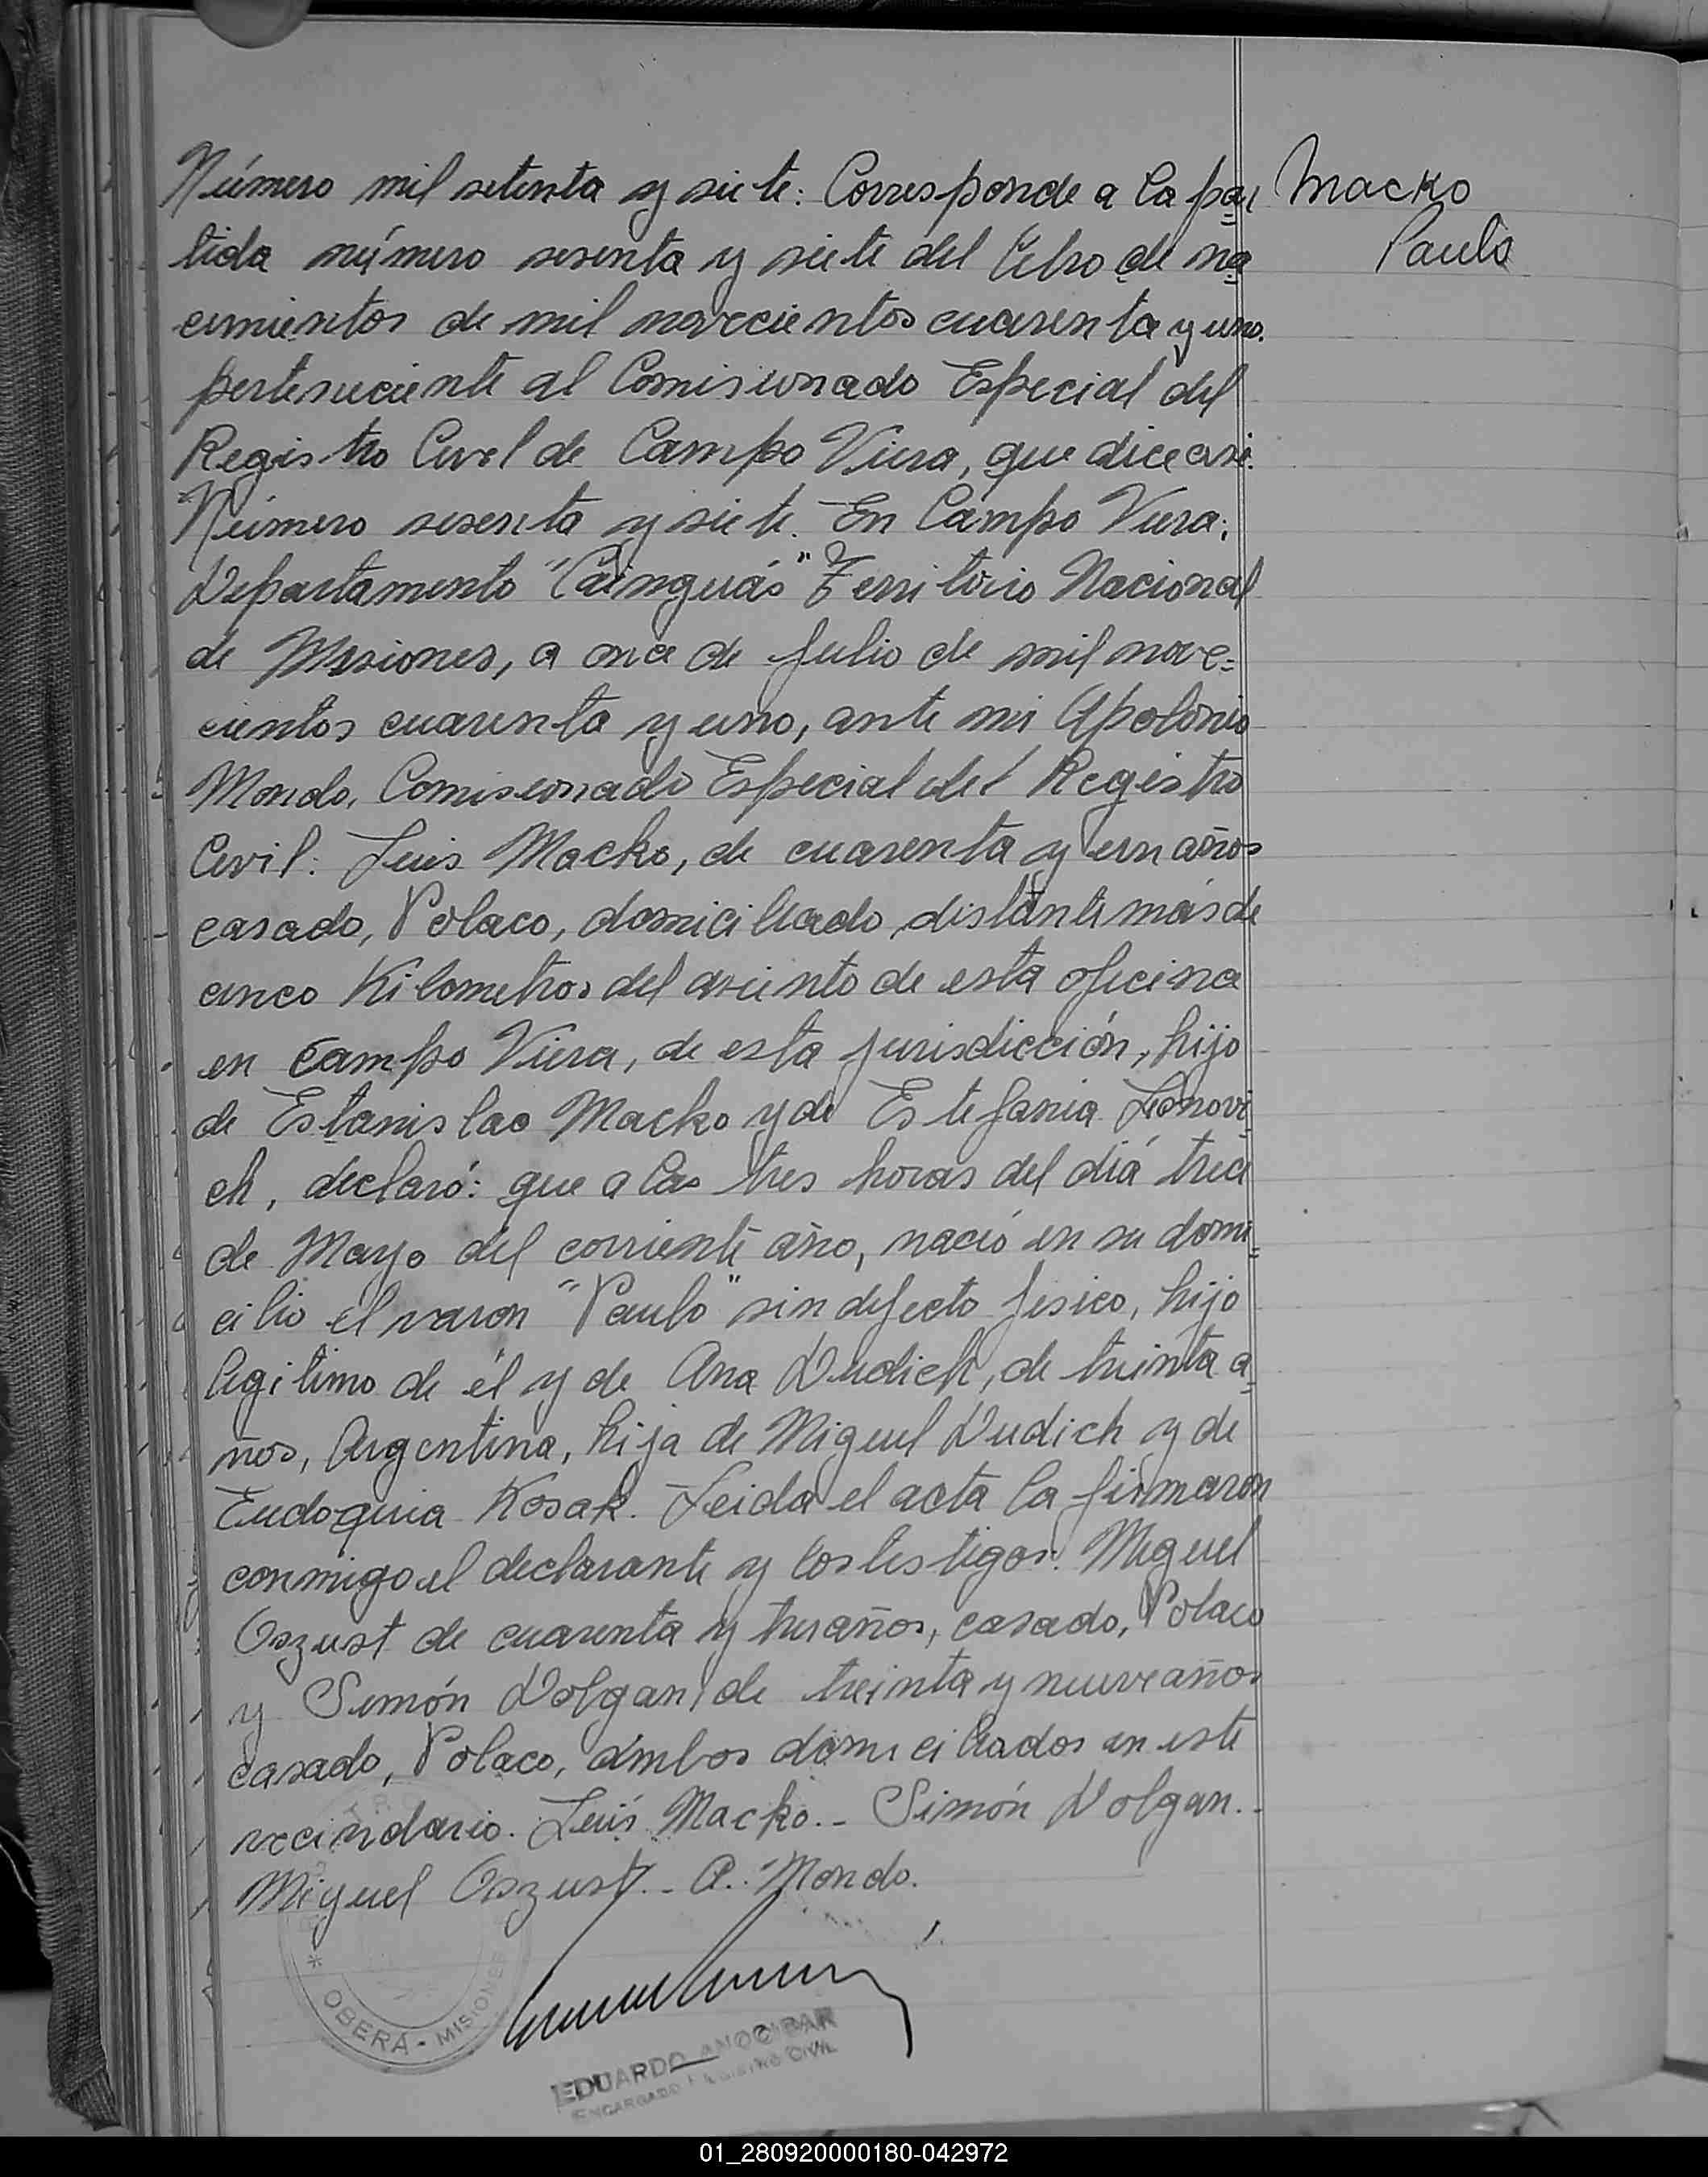 Número mil setenta y siete: Corresponde a la par
Macko
Paulo
tida número sesenta y siete del libro de na
cimientos de mil novecientos cuarenta y uno.
perteneciente al Comisionado Especial del
Registro Civil de Campo Viera, que dice así:
Número sesenta y siete. En Campo Viera,
Departamento "Cainguás" Territorio Nacional
de Misiones, a once de Julio de mil nove=
cientos cuarenta y uno, ante mi Apolonio
Mondo, Comisionado Especial del Registro
Civil: Luis Macko, de cuarenta y un años
casado, Polaco, domiciliado, distante más de
cinco Kilometros del asiento de esta oficina
en Campo Viera, de esta jurisdicción, hijo
de Estanislao Macko y de Estefania Lanovi
ch, declaró: que a las tres horas del diá trece
de Mayo del corriente año, nació en su domi=
cilio el varon "Paulo" sin defecto fisico, hijo
legitimo de él y de Ana Dudich, de treinta a=
ños, Argentina, hija de Miguel Dudich y de
Eudoquia Kosak. Leida el acta la firmaron
conmigo el declarante y los testigos: Miguel
Oszust de cuarenta y tres años, casado, Polaco
y Simón Dolgan de treinta y nueve años
casado, Polaco, ambos domiciliados en este
vecindario. Luis Macko.- Simón Dolgan.-
Miguel Oszust.- A. Mondo.
* OBERÁ - MISIONES
EDUARDO ANOCIBAR
ENCARGADO REGISTRO CIVIL
01_280920000180-042972